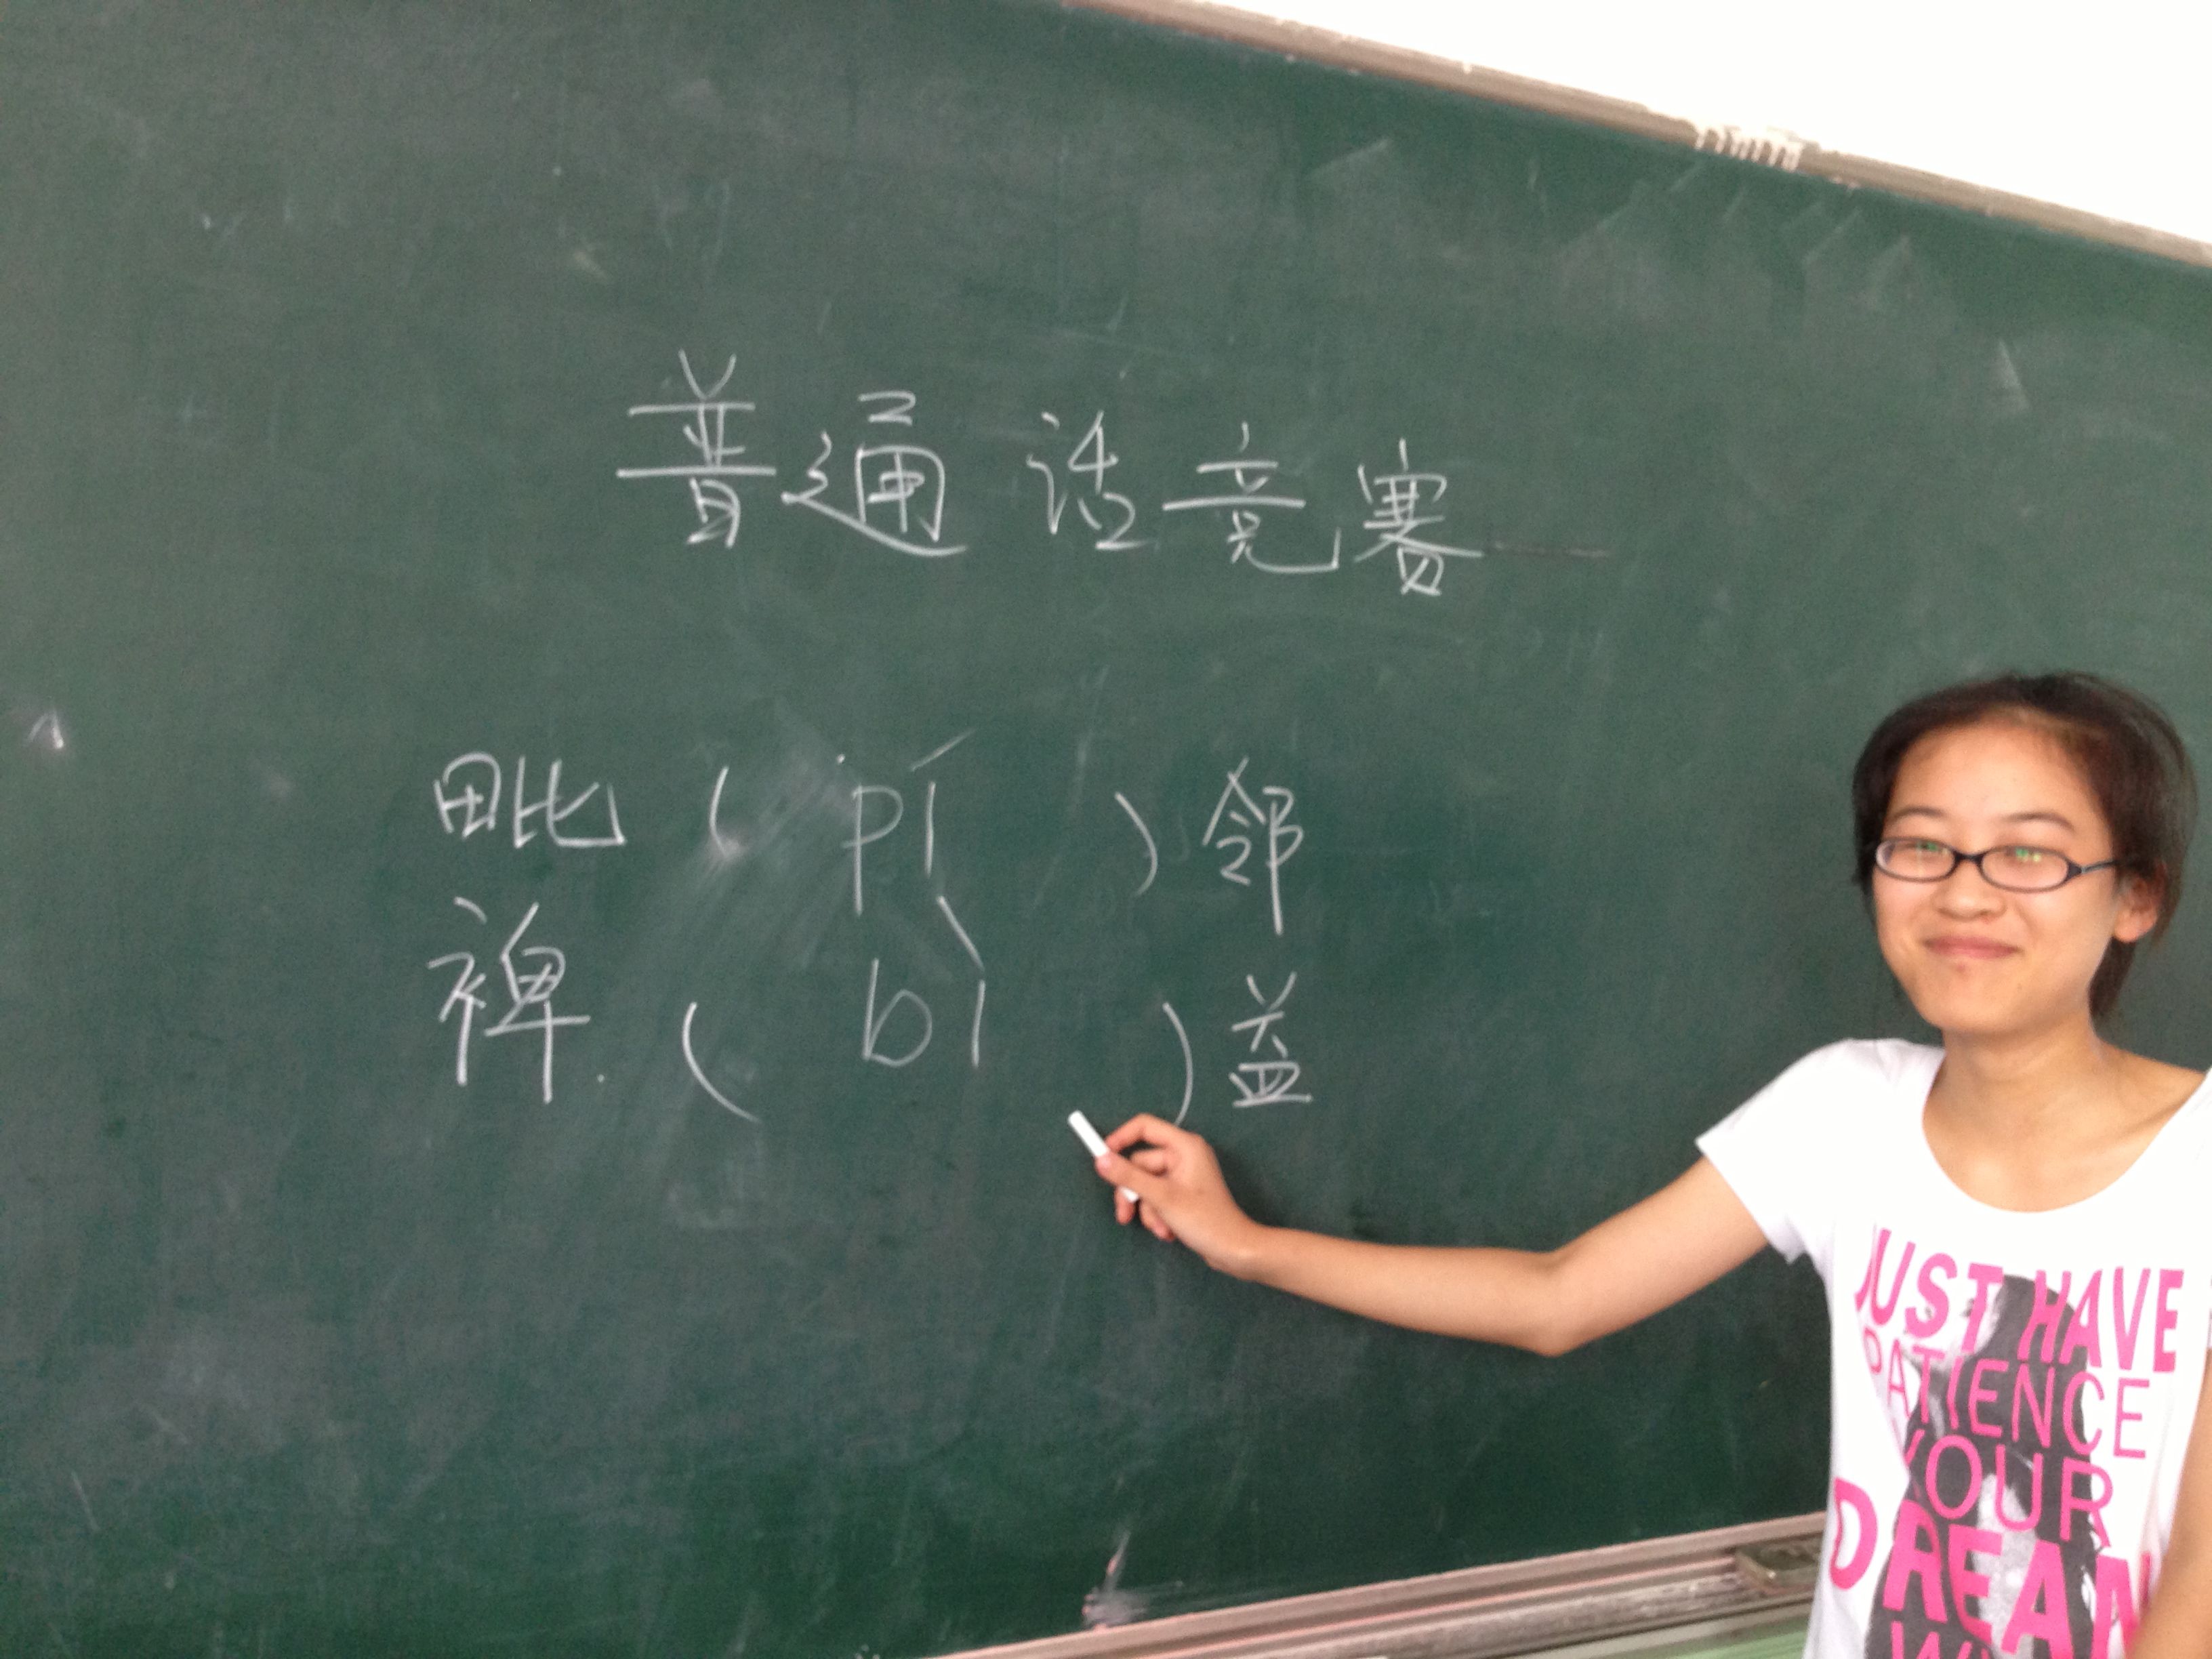 普通话竞赛
毗 (pí) 邻
裨 (bì) 益
JUST HAVE
PATIENCE
YOUR
DREAM